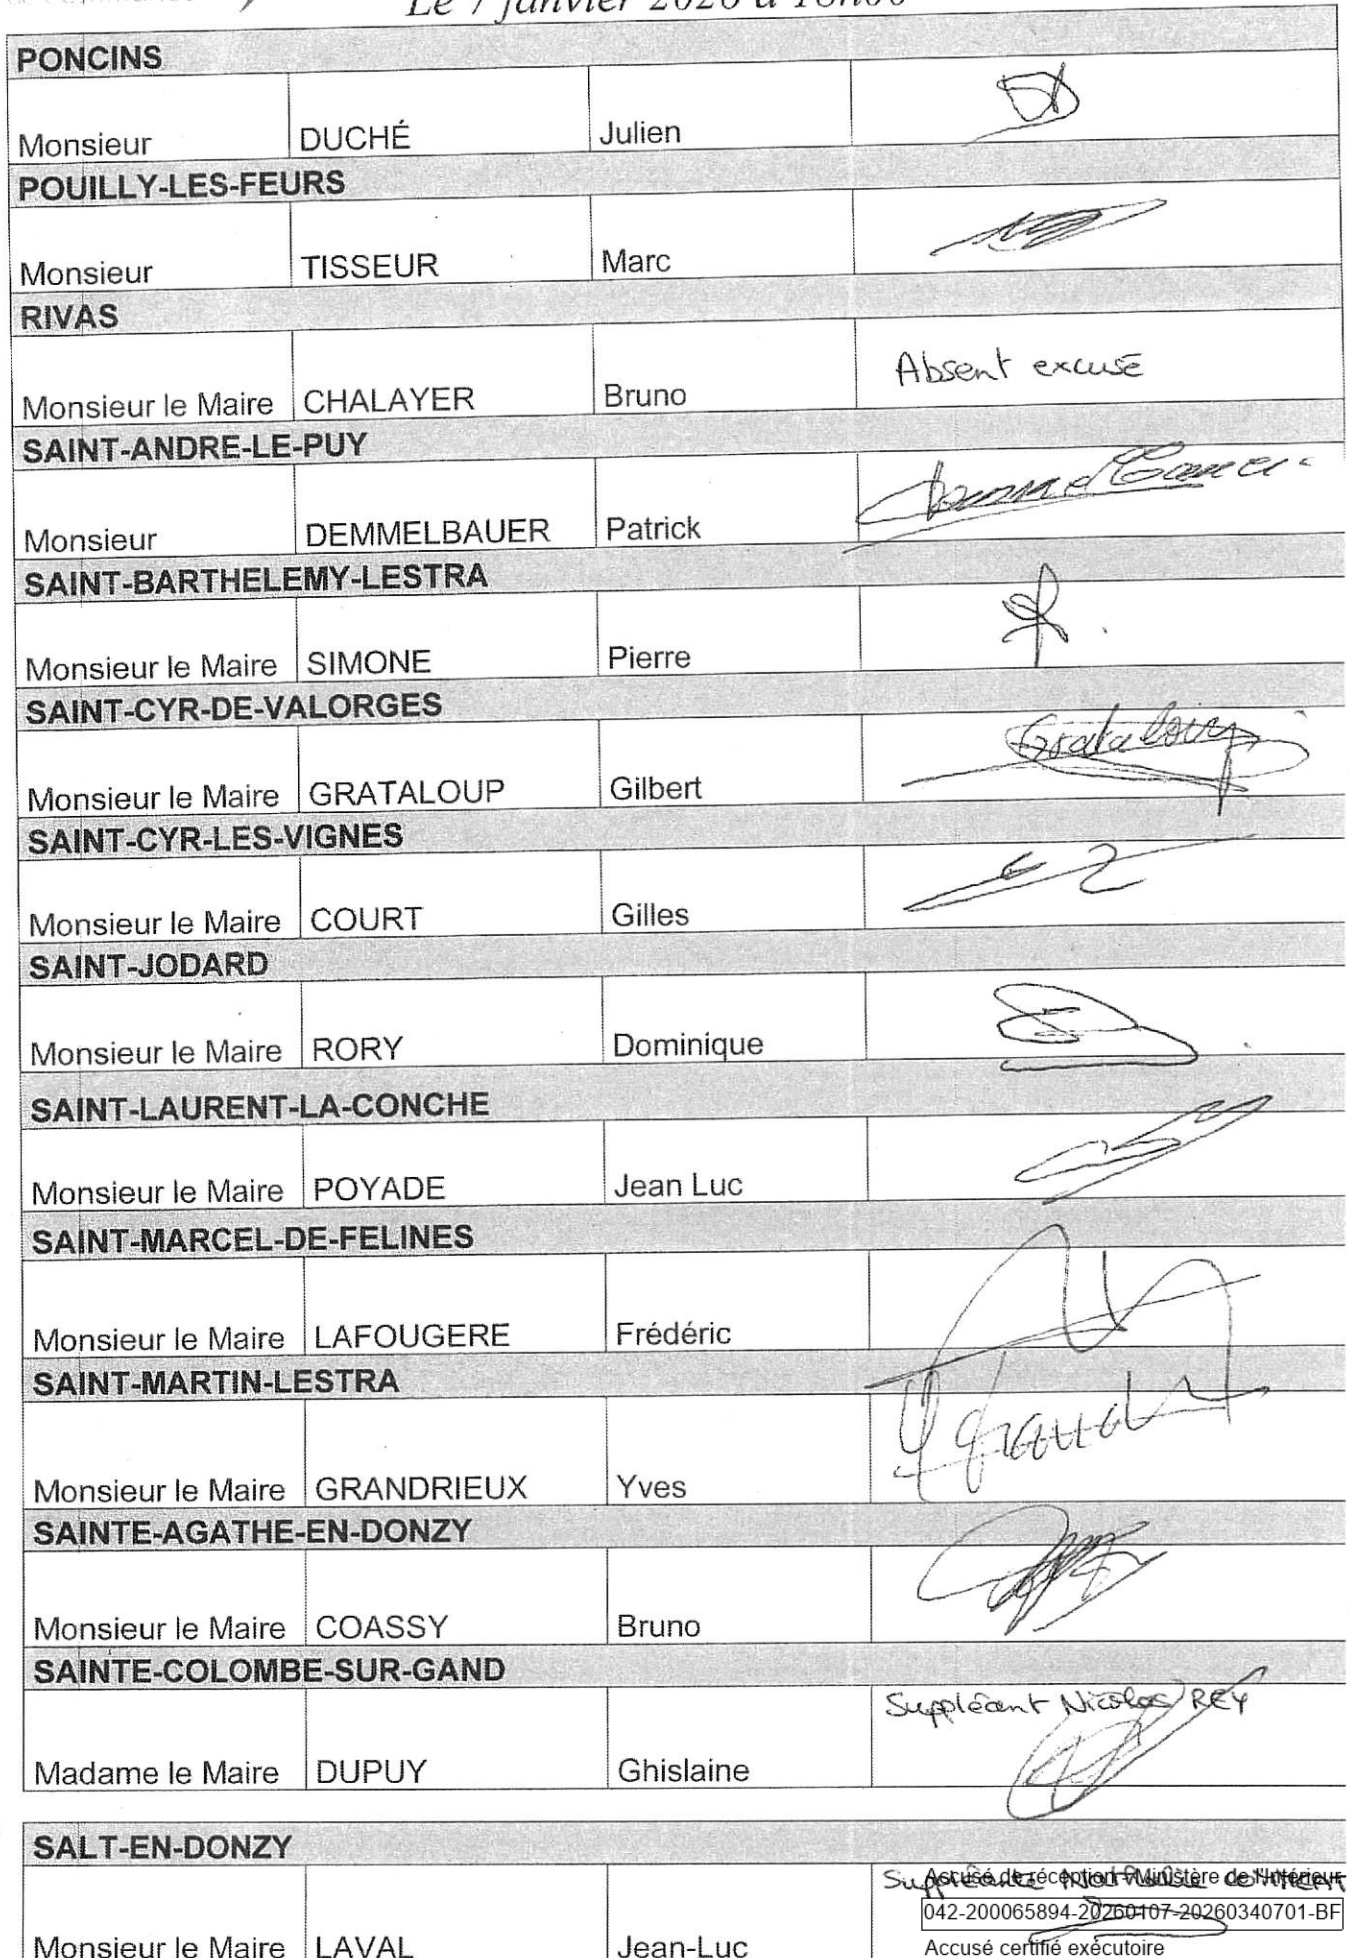 Le 7 janvier 2026 à 18h00
PONCINS
Monsieur DUCHÉ Julien
POUILLY-LES-FEURS
Monsieur TISSEUR Marc
RIVAS
Monsieur le Maire CHALAYER Bruno Absent excusé
SAINT-ANDRE-LE-PUY
Monsieur DEMMELBAUER Patrick
SAINT-BARTHELEMY-LESTRA
Monsieur le Maire SIMONE Pierre
SAINT-CYR-DE-VALORGES
Grataloup
Monsieur le Maire GRATALOUP Gilbert
SAINT-CYR-LES-VIGNES
Monsieur le Maire COURT Gilles
SAINT-JODARD
Monsieur le Maire RORY Dominique
SAINT-LAURENT-LA-CONCHE
Monsieur le Maire POYADE Jean Luc
SAINT-MARCEL-DE-FELINES
Monsieur le Maire LAFOUGERE Frédéric
SAINT-MARTIN-LESTRA
Monsieur le Maire GRANDRIEUX Yves
SAINTE-AGATHE-EN-DONZY
Monsieur le Maire COASSY Bruno
SAINTE-COLOMBE-SUR-GAND
Suppléant Nicolas REY
Madame le Maire DUPUY Ghislaine
SALT-EN-DONZY
Suppléante
Accusé de réception - Ministère de l'Intérieur
042-200065894-20260107-20260340701-BF
Monsieur le Maire LAVAL Jean-Luc
Accusé certifié exécutoire